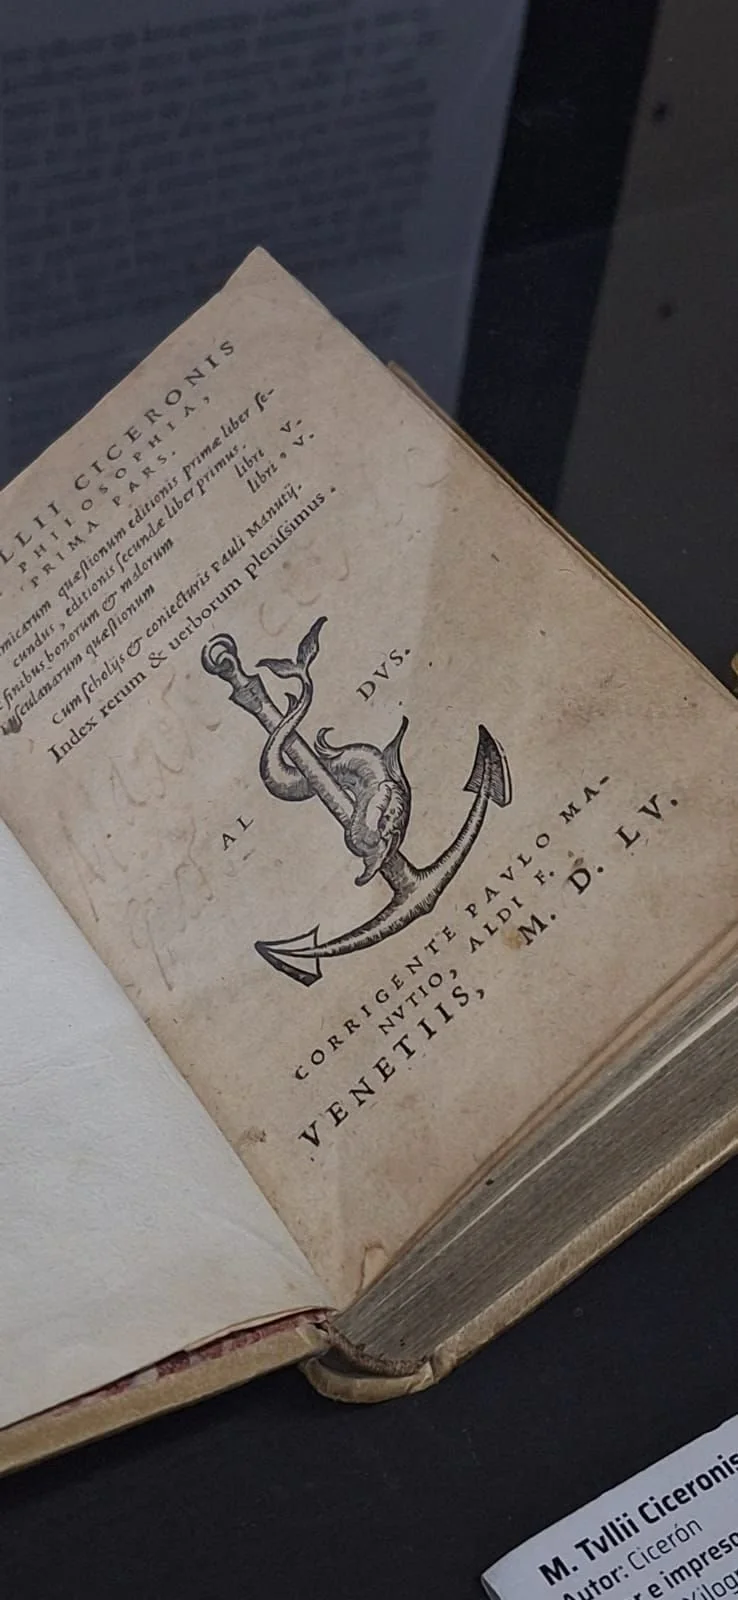 LLII CICERONIS
PHILOSOPHIA,
PRIMA PARS.
micarum quæſtionum editionis primæ liber ſe-
cundus, editionis ſecundæ liber primus.
finibus bonorum & malorum libri v.
ſculanarum quæſtionum libri v.
Cum ſcholijs & coniecturis Pauli Manutij.
Index rerum & uerborum pleniſsimus.
AL DVS.
CORRIGENTE PAVLO MA-
NVTIO, ALDI F.
VENETIIS, M. D. LV.
M. Tvllii Ciceronis
Autor: Cicerón
r e impreso
Xilogr